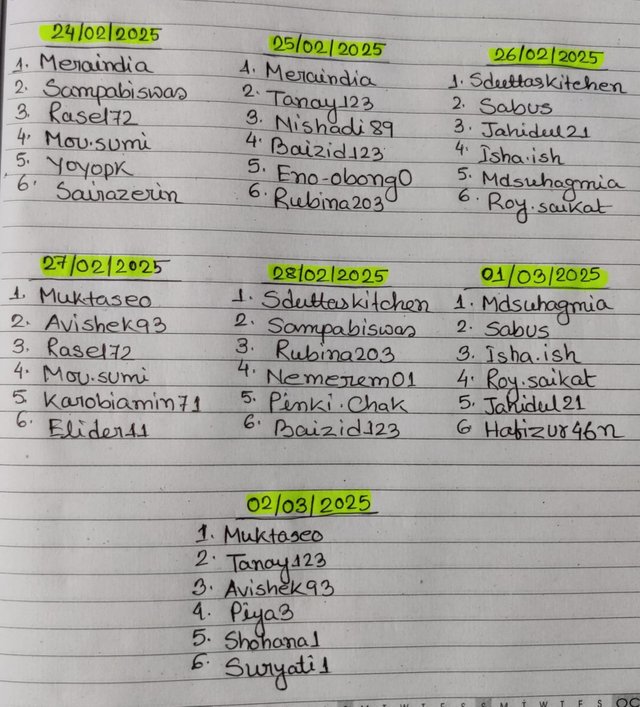 24/02/2025
1. Meraindia
2. Sampabiswas
3. Rasel72
4. Mou.sumi
5. Yoyopk
6. Sairazerin
25/02/2025
1. Meraindia
2. Tanay123
3. Nishadi89
4. Baizid123
5. Eno-obong0
6. Rubina203
26/02/2025
1. Sduttaskitchen
2. Sabus
3. Jahidul21
4. Isha.ish
5. Mdsuhagmia
6. Roy.saikat
27/02/2025
1. Muktaseo
2. Avishek93
3. Rasel72
4. Mou.sumi
5. Karobiamin71
6. Elider11
28/02/2025
1. Sduttaskitchen
2. Sampabiswas
3. Rubina203
4. Nemerem01
5. Pinki.Chak
6. Baizid123
01/03/2025
1. Mdsuhagmia
2. Sabus
3. Isha.ish
4. Roy.saikat
5. Jahidul21
6 Hafizur46n
02/03/2025
1. Muktaseo
2. Tanay123
3. Avishek93
4. Piya3
5. Shohana1
6. Suryati1